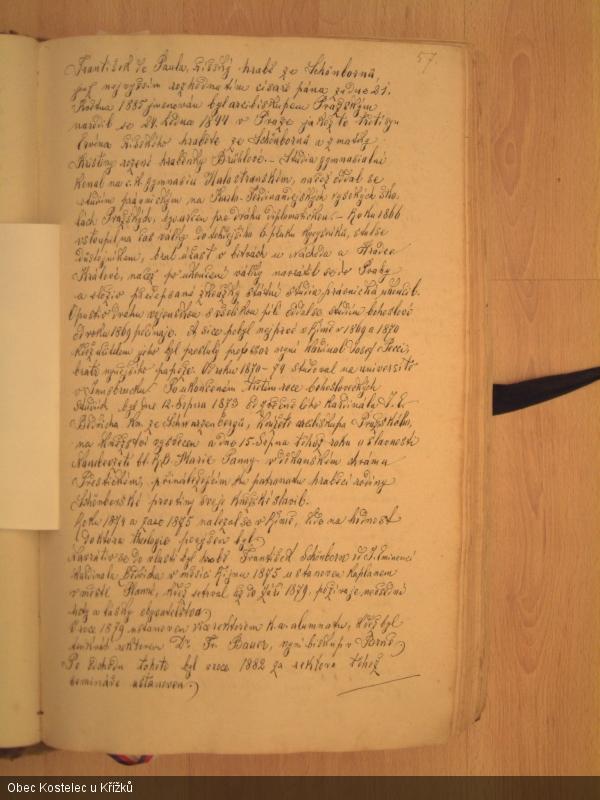 57.
František de Paula, říšský hrabě ze Schönbornů,
jenž nejvyšším rozhodnutím císaře pána ze dne 21.
května 1885 jmenován byl arcibiskupem Pražským
narodil se 24. ledna 1844 v Praze jakožto třetí syn
Ervína říšského hraběte ze Schönbornů a z matky
Kristiny rozené hraběnky Brühlove. – Studia gymnasialní
konal na c.k. gymnasiu Malostranském, načež oddal se
studiím právnickým na Karlo-Ferdinandejských vysokých ško-
lách Pražských, pro dráhu diplomatickou. – Roku 1866
vstoupil na čas války do těžkého pluku kyrysníků, stal se
důstojníkem, bral účast v bitvách u Náchoda a Hradce
Králové, načež po ukončení války navrátil se do Prahy
a složiv předepsané zkoušky státní studia právnická ukončil.
Opustiv dráhu vojenskou s velikou pílí oddal se studiu bohosloví
od roku 1869 počínaje. A sice pobyl nejprvé v Římě v 1869 a 1870
kdež učitelem jeho byl proslulý professor nyní kardinal Josef Pecci,
bratr nynějšího papeže. Od roku 1870–74 studoval na universitě
v Innsbrucku. Po ukončeném třetím roce bohosloveckých
studiích byl dne 12. srpna 1873 od zvěčnělého kardinála J.E.
Bedřicha kn. ze Schwarzenbergů, knížete arcibiskupa Pražského,
na kněžství vysvěcen a dne 15. srpna téhož roku u slavnosti
Nanebevzetí bl. R.B. Marie Panny v děkanském chrámu
Přeštickém, přináležejícím ku patronatu hraběcí rodiny
Schönbornské prvotiny svoje kněžské slavil.
Roku 1874 a zase 1875 nalezal se v Římě, kde na hodnost
doktora theologie povýšen byl.
Navrátiv se do vlasti byl hrabě František Schönborn od J. Eminencí
kardinala Bedřicha v měsíci říjnu 1875 ustanoven kaplanem
v městě Planné, kdež setrval až do září 1879, požívaje nevšední
úcty a lásky obyvatelstva.
V roce 1879 ustanoven vicerektorem k.a. alumnatu, kdež byl
tenkrát rektorem Dr. Fr. Bauer, nyní biskup v Brně.
Po odchodu tohoto byl v roce 1882 za rektora téhož
semináře ustanoven.
Obec Kostelec u Křížků